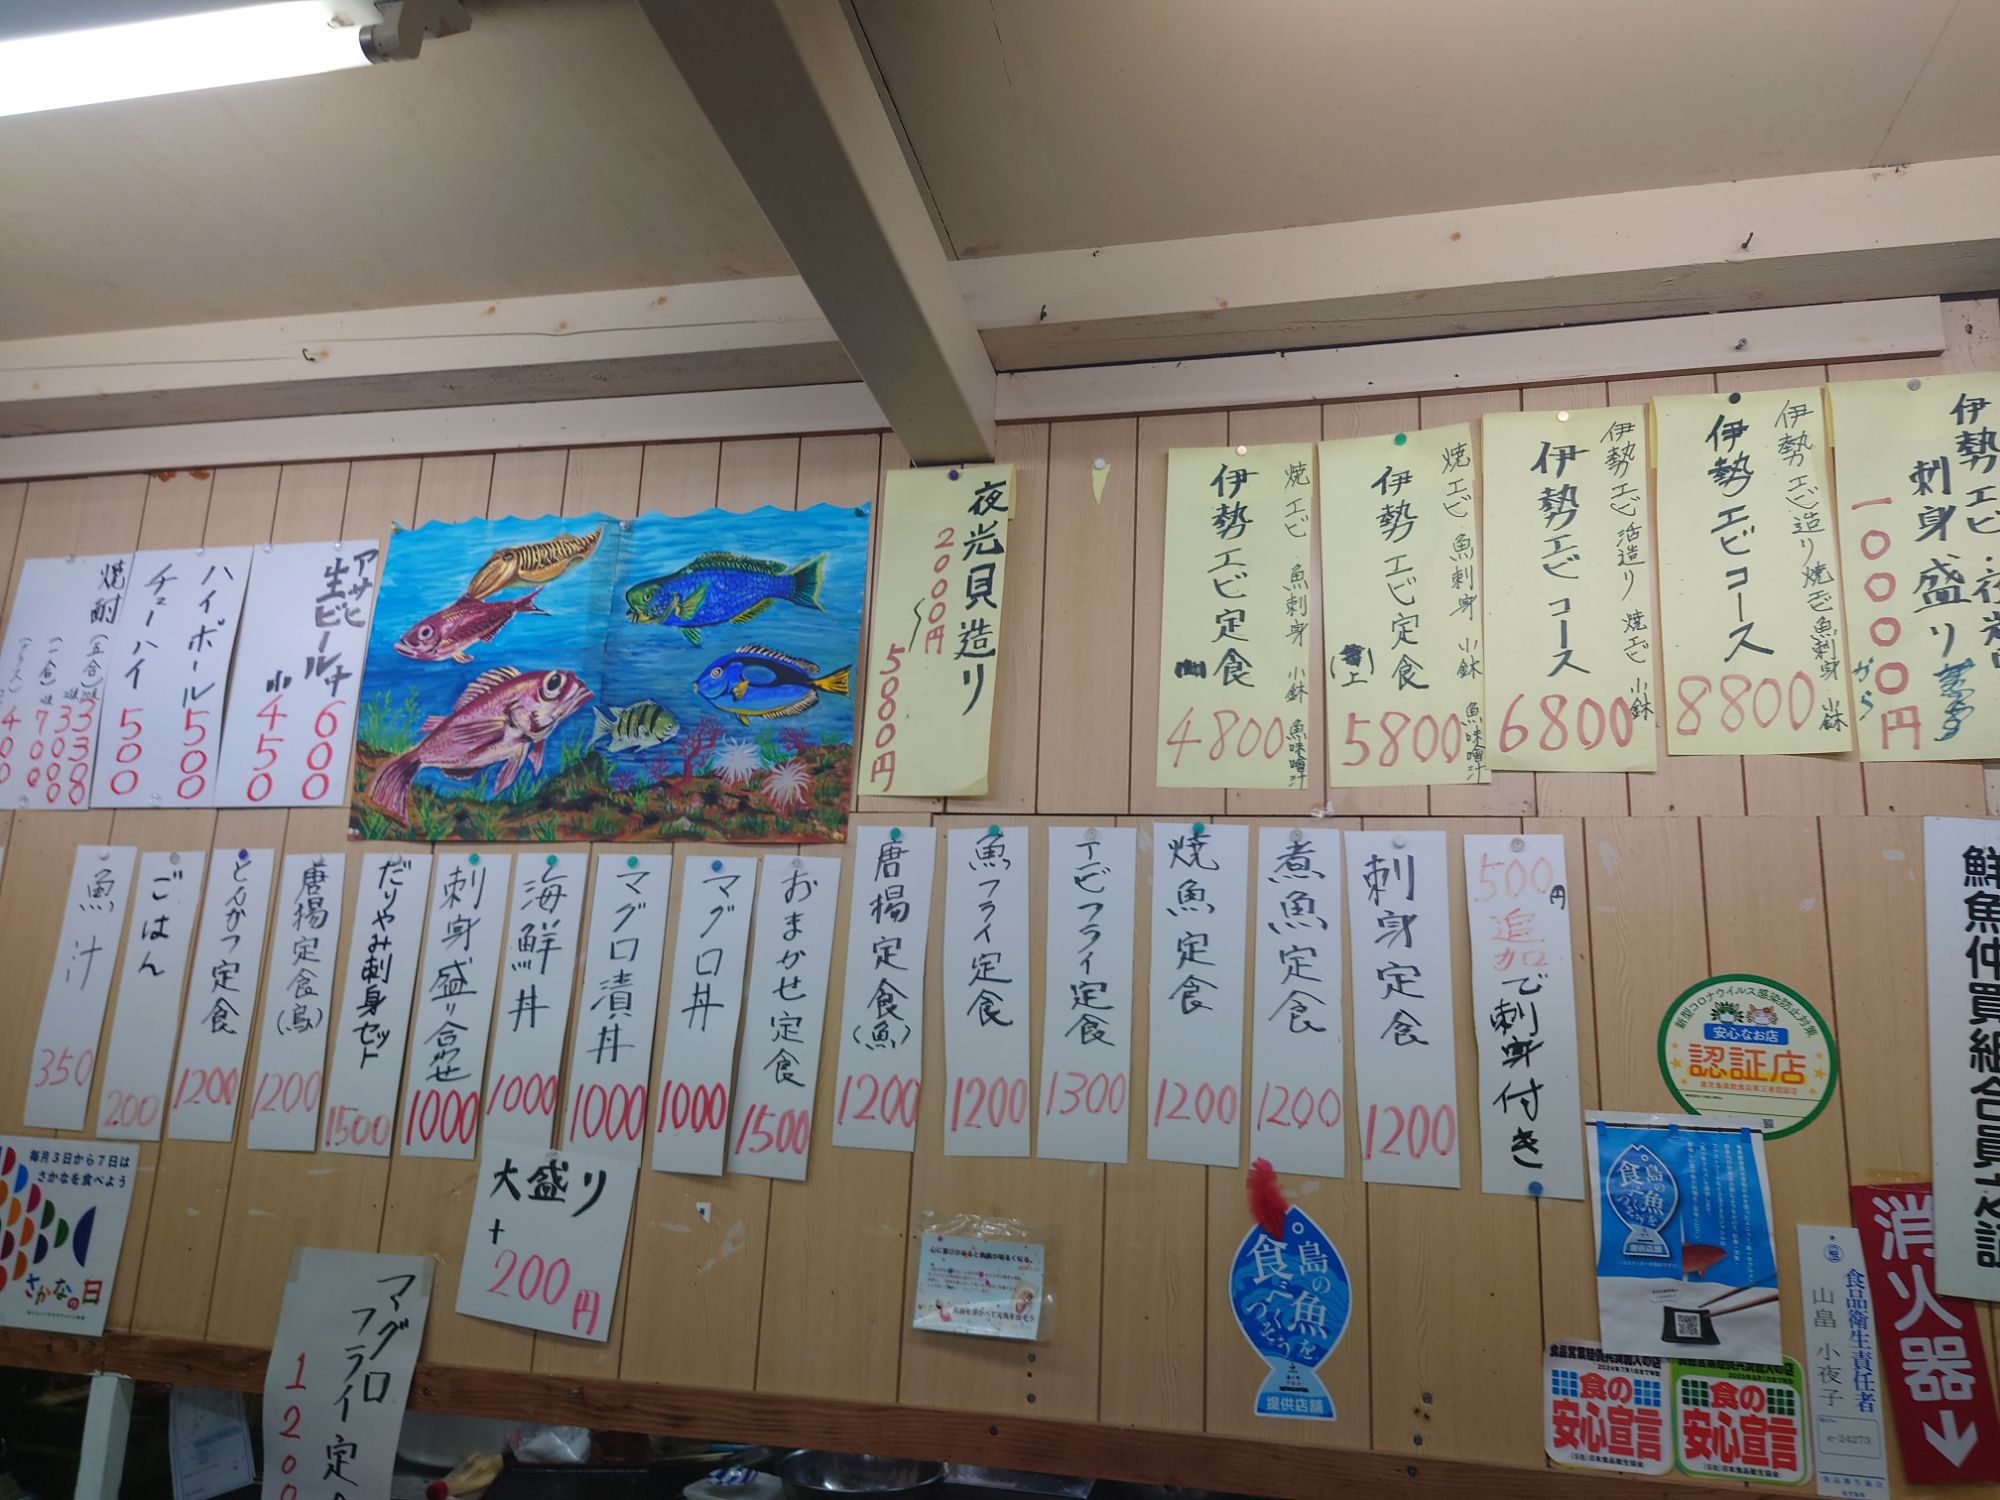 伊勢エビ・夜光
刺身盛り
10000円
から
伊勢エビコース
伊勢エビ造り 焼エビ 魚刺身 小鉢
8800
伊勢エビコース
伊勢エビ活造り 焼エビ 小鉢
6800
伊勢エビ定食
上
焼エビ 魚刺身 小鉢 魚味噌汁
5800
伊勢エビ定食
焼エビ 魚刺身 小鉢 魚味噌汁
4800
夜光貝造り
2000円
〜
5800円
アサヒ
生ビール中 600
小 450
ハイボール 500
チューハイ 500
焼酎(五合)
(一合)
500円追加で刺身付き
刺身定食 1200
煮魚定食 1200
焼魚定食 1200
エビフライ定食 1300
魚フライ定食 1200
唐揚定食(魚) 1200
おまかせ定食 1500
マグロ丼 1000
マグロ漬丼 1000
海鮮丼 1000
大盛り
+
200円
刺身盛り合わせ 1000
だりやみ刺身セット 1500
唐揚定食(鳥) 1200
とんかつ定食 1200
ごはん 200
魚汁 350
マグロ
フライ定
120
毎月3日から7日は
さかなを食べよう
さかなの日
心に富があると表情が明るくなる。
島の魚を
食べつくそう
提供店舗
新型コロナウイルス感染防止対策
安心なお店
認証店
鹿児島県飲食店第三者認証店
島の魚を
食べつくそう
提供店舗
食品営業賠償共済加入の店
食の
安心宣言
(公社)日本食品衛生協会
食の
安心宣言
(公社)日本食品衛生協会
食品衛生責任者
山畠 小夜子
e-24273
消火器
鮮魚仲買組合員之証